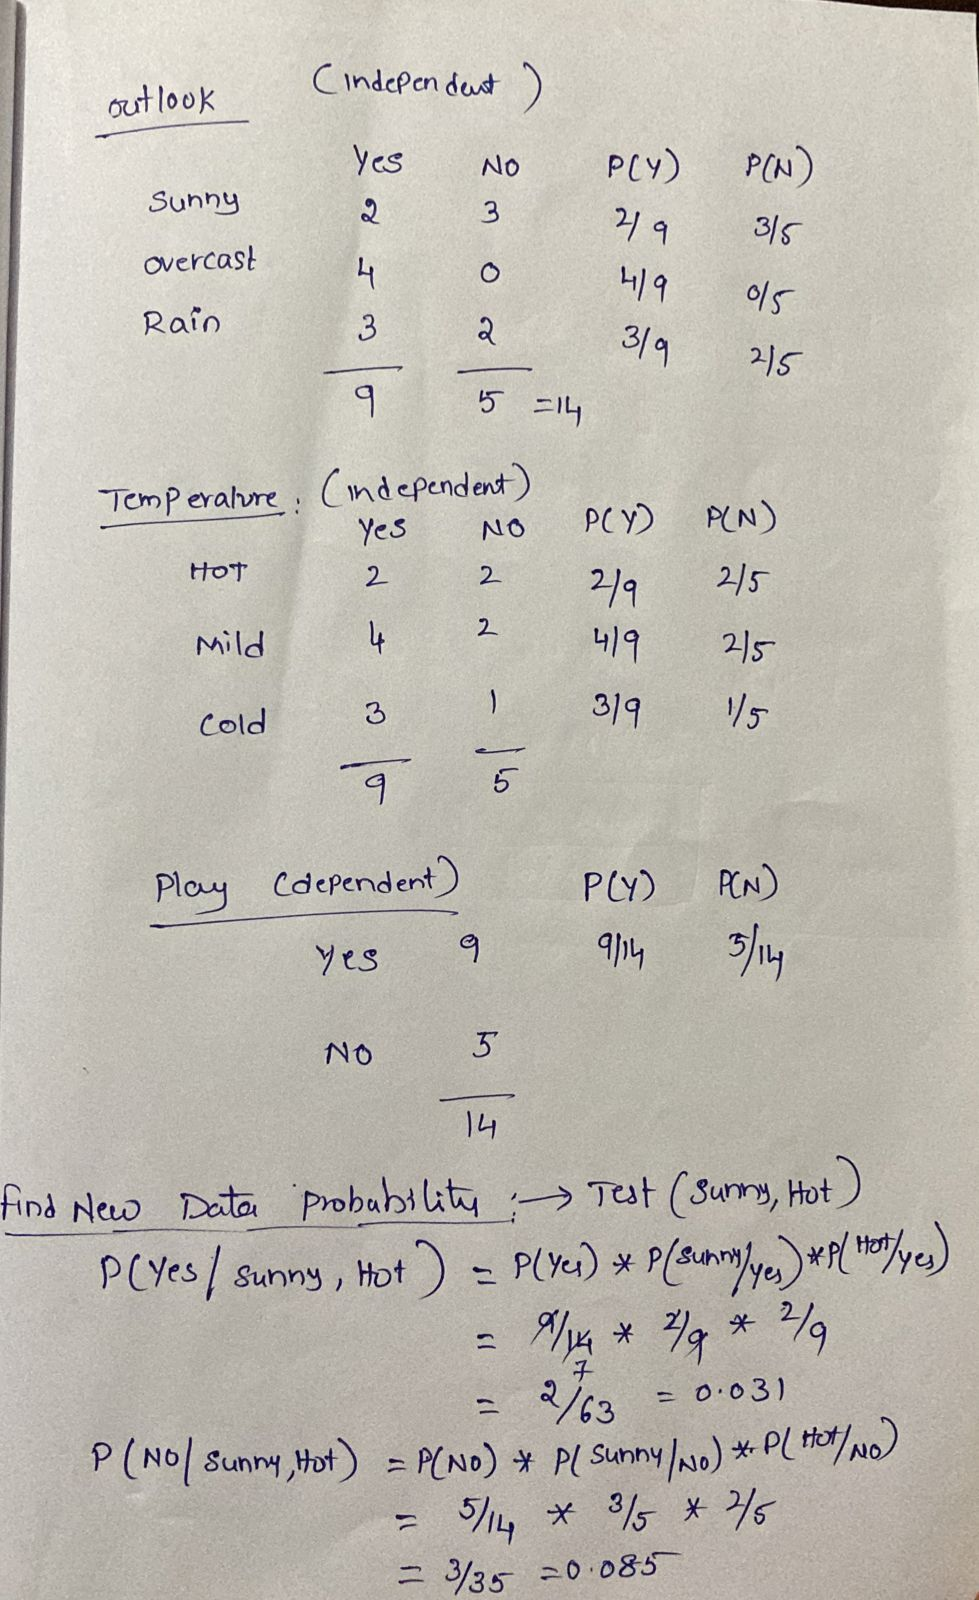 outlook (independent)
Yes NO P(Y) P(N)
Sunny 2 3 2/9 3/5
overcast 4 0 4/9 0/5
Rain 3 2 3/9 2/5
9 5 =14
Temperature: (independent)
Yes NO P(Y) P(N)
HOT 2 2 2/9 2/5
Mild 4 2 4/9 2/5
Cold 3 1 3/9 1/5
9 5
Play (dependent) P(Y) P(N)
Yes 9 9/14 5/14
NO 5
14
find New Data probability :→ Test (sunny, Hot)
P(Yes/sunny, Hot) = P(Yes) * P(sunny/yes) * P(Hot/yes)
= 9/14 * 2/9 * 2/9
7
= 2/63 = 0.031
P(NO/sunny, Hot) = P(NO) * P(sunny/NO) * P(Hot/NO)
= 5/14 * 3/5 * 2/5
= 3/35 = 0.085